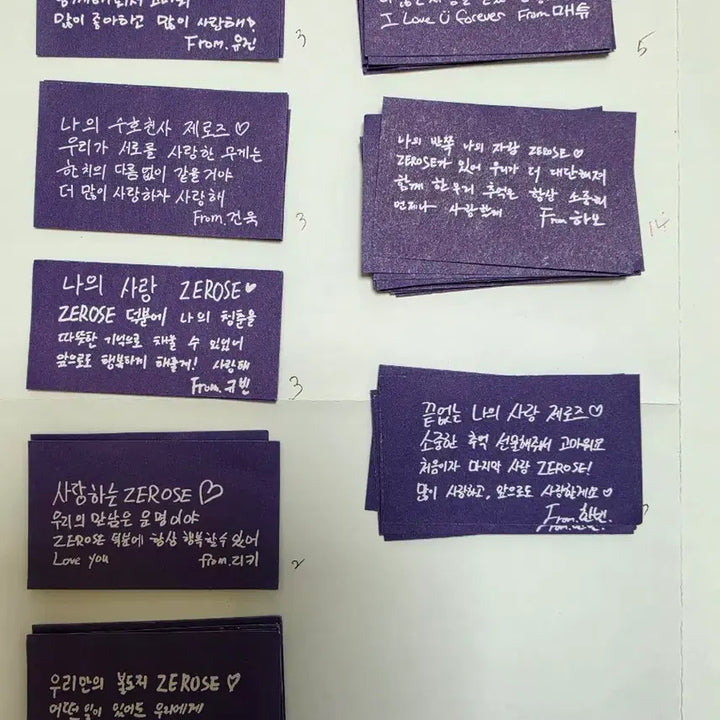 많이 좋아하고 많이 사랑해!
From.유진
3
나의 수호천사 제로즈♡
우리가 서로를 사랑한 무게는
한 치의 다름없이 같을거야
더 많이 사랑하자 사랑해
From.건욱
3
나의 사랑 ZEROSE♥
ZEROSE 덕분에 나의 청춘을
따뜻한 기억으로 채울 수 있었어
앞으로도 행복하게 해줄게! 사랑해
From.규빈
3
사랑하는 ZEROSE ♡
우리의 만남은 운명이야
ZEROSE 덕분에 항상 행복할 수 있어
Love you from.리키
2
우리만의 ZEROSE ♡
어떤 일이 있어도 우리에게
I Love U forever From.매튜
5
나의 반쪽 나의 자랑 ZEROSE♡
ZEROSE가 있어 우리가 더 대단해져
함께 한 우리 추억은 항상 소중히
언제나 사랑한해
From.하오
끝없는 나의 사랑 제로즈♡
소중한 추억 선물해줘서 고마워요
처음이자 마지막 사랑 ZEROSE!
많이 사랑하고, 앞으로도 사랑할게요♡
From.한빈